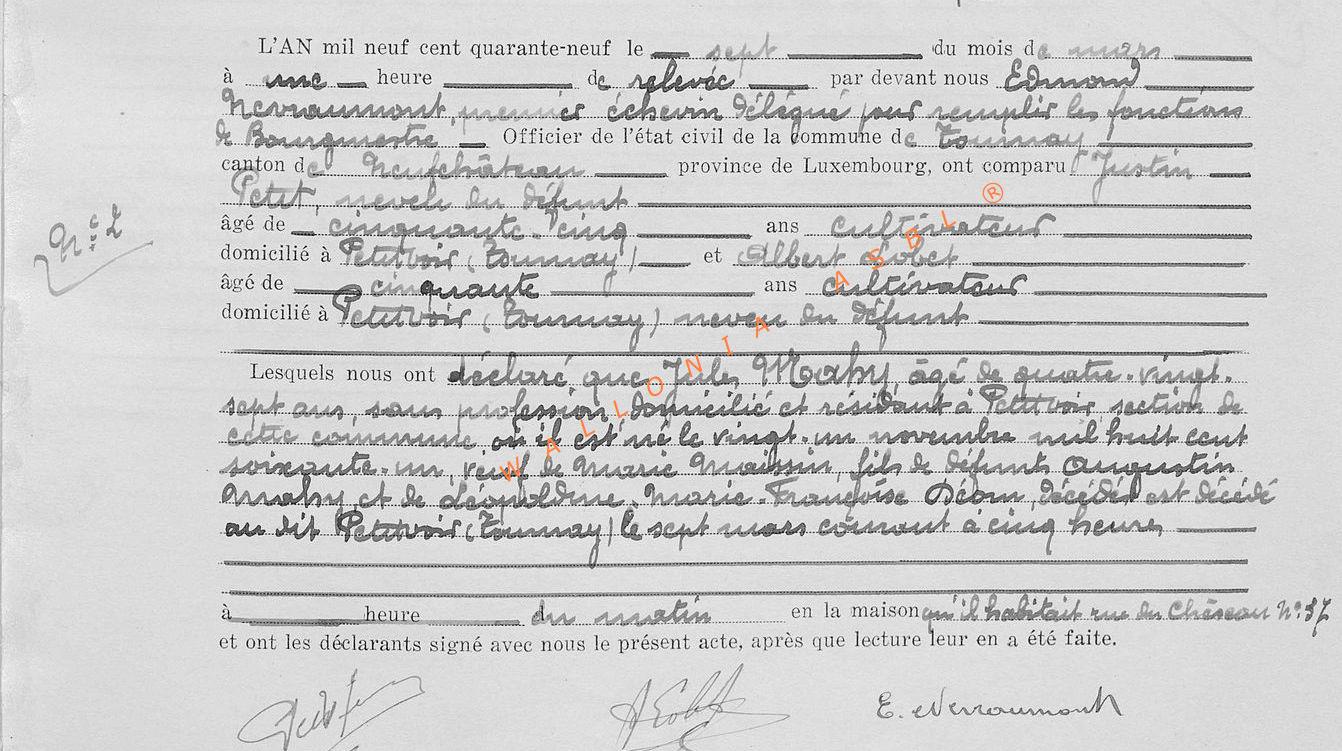 L'AN mil neuf cent quarante-neuf le sept du mois de mars
à une heure de relevée par devant nous Edmond
Nevraumont, premier échevin délégué pour remplir les fonctions
de Bourgmestre Officier de l'état civil de la commune de Tournay
canton de Neufchâteau province de Luxembourg, ont comparu Justin
Petit, neveu du défunt
âgé de cinquante-cinq ans cultivateur
domicilié à Petitvoir (Tournay) et Albert
âgé de cinquante ans cultivateur
domicilié à Petitvoir (Tournay) neveu du défunt
N° 2
Lesquels nous ont déclaré que Jules Mahy, âgé de quatre-vingt-
sept ans, sans profession, domicilié et résidant à Petitvoir, section de
cette commune où il est né le vingt-un novembre mil huit cent
soixante-un, veuf de Marie Maissin, fils de défunts Augustin
Mahy et de Léopoldine-Marie-Françoise décédés est décédé
au dit Petitvoir (Tournay) le sept mars courant à cinq heures
à heure du matin en la maison qu'il habitait rue du Château N° 37
et ont les déclarants signé avec nous le présent acte, après que lecture leur en a été faite.
E. Nevraumont
WALLONIA ASBL ®